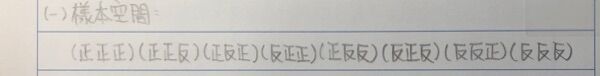 (一)樣本空間:
(正正正)(正正反)(正反正)(反正正)(正反反)(反正反)(反反正)(反反反)